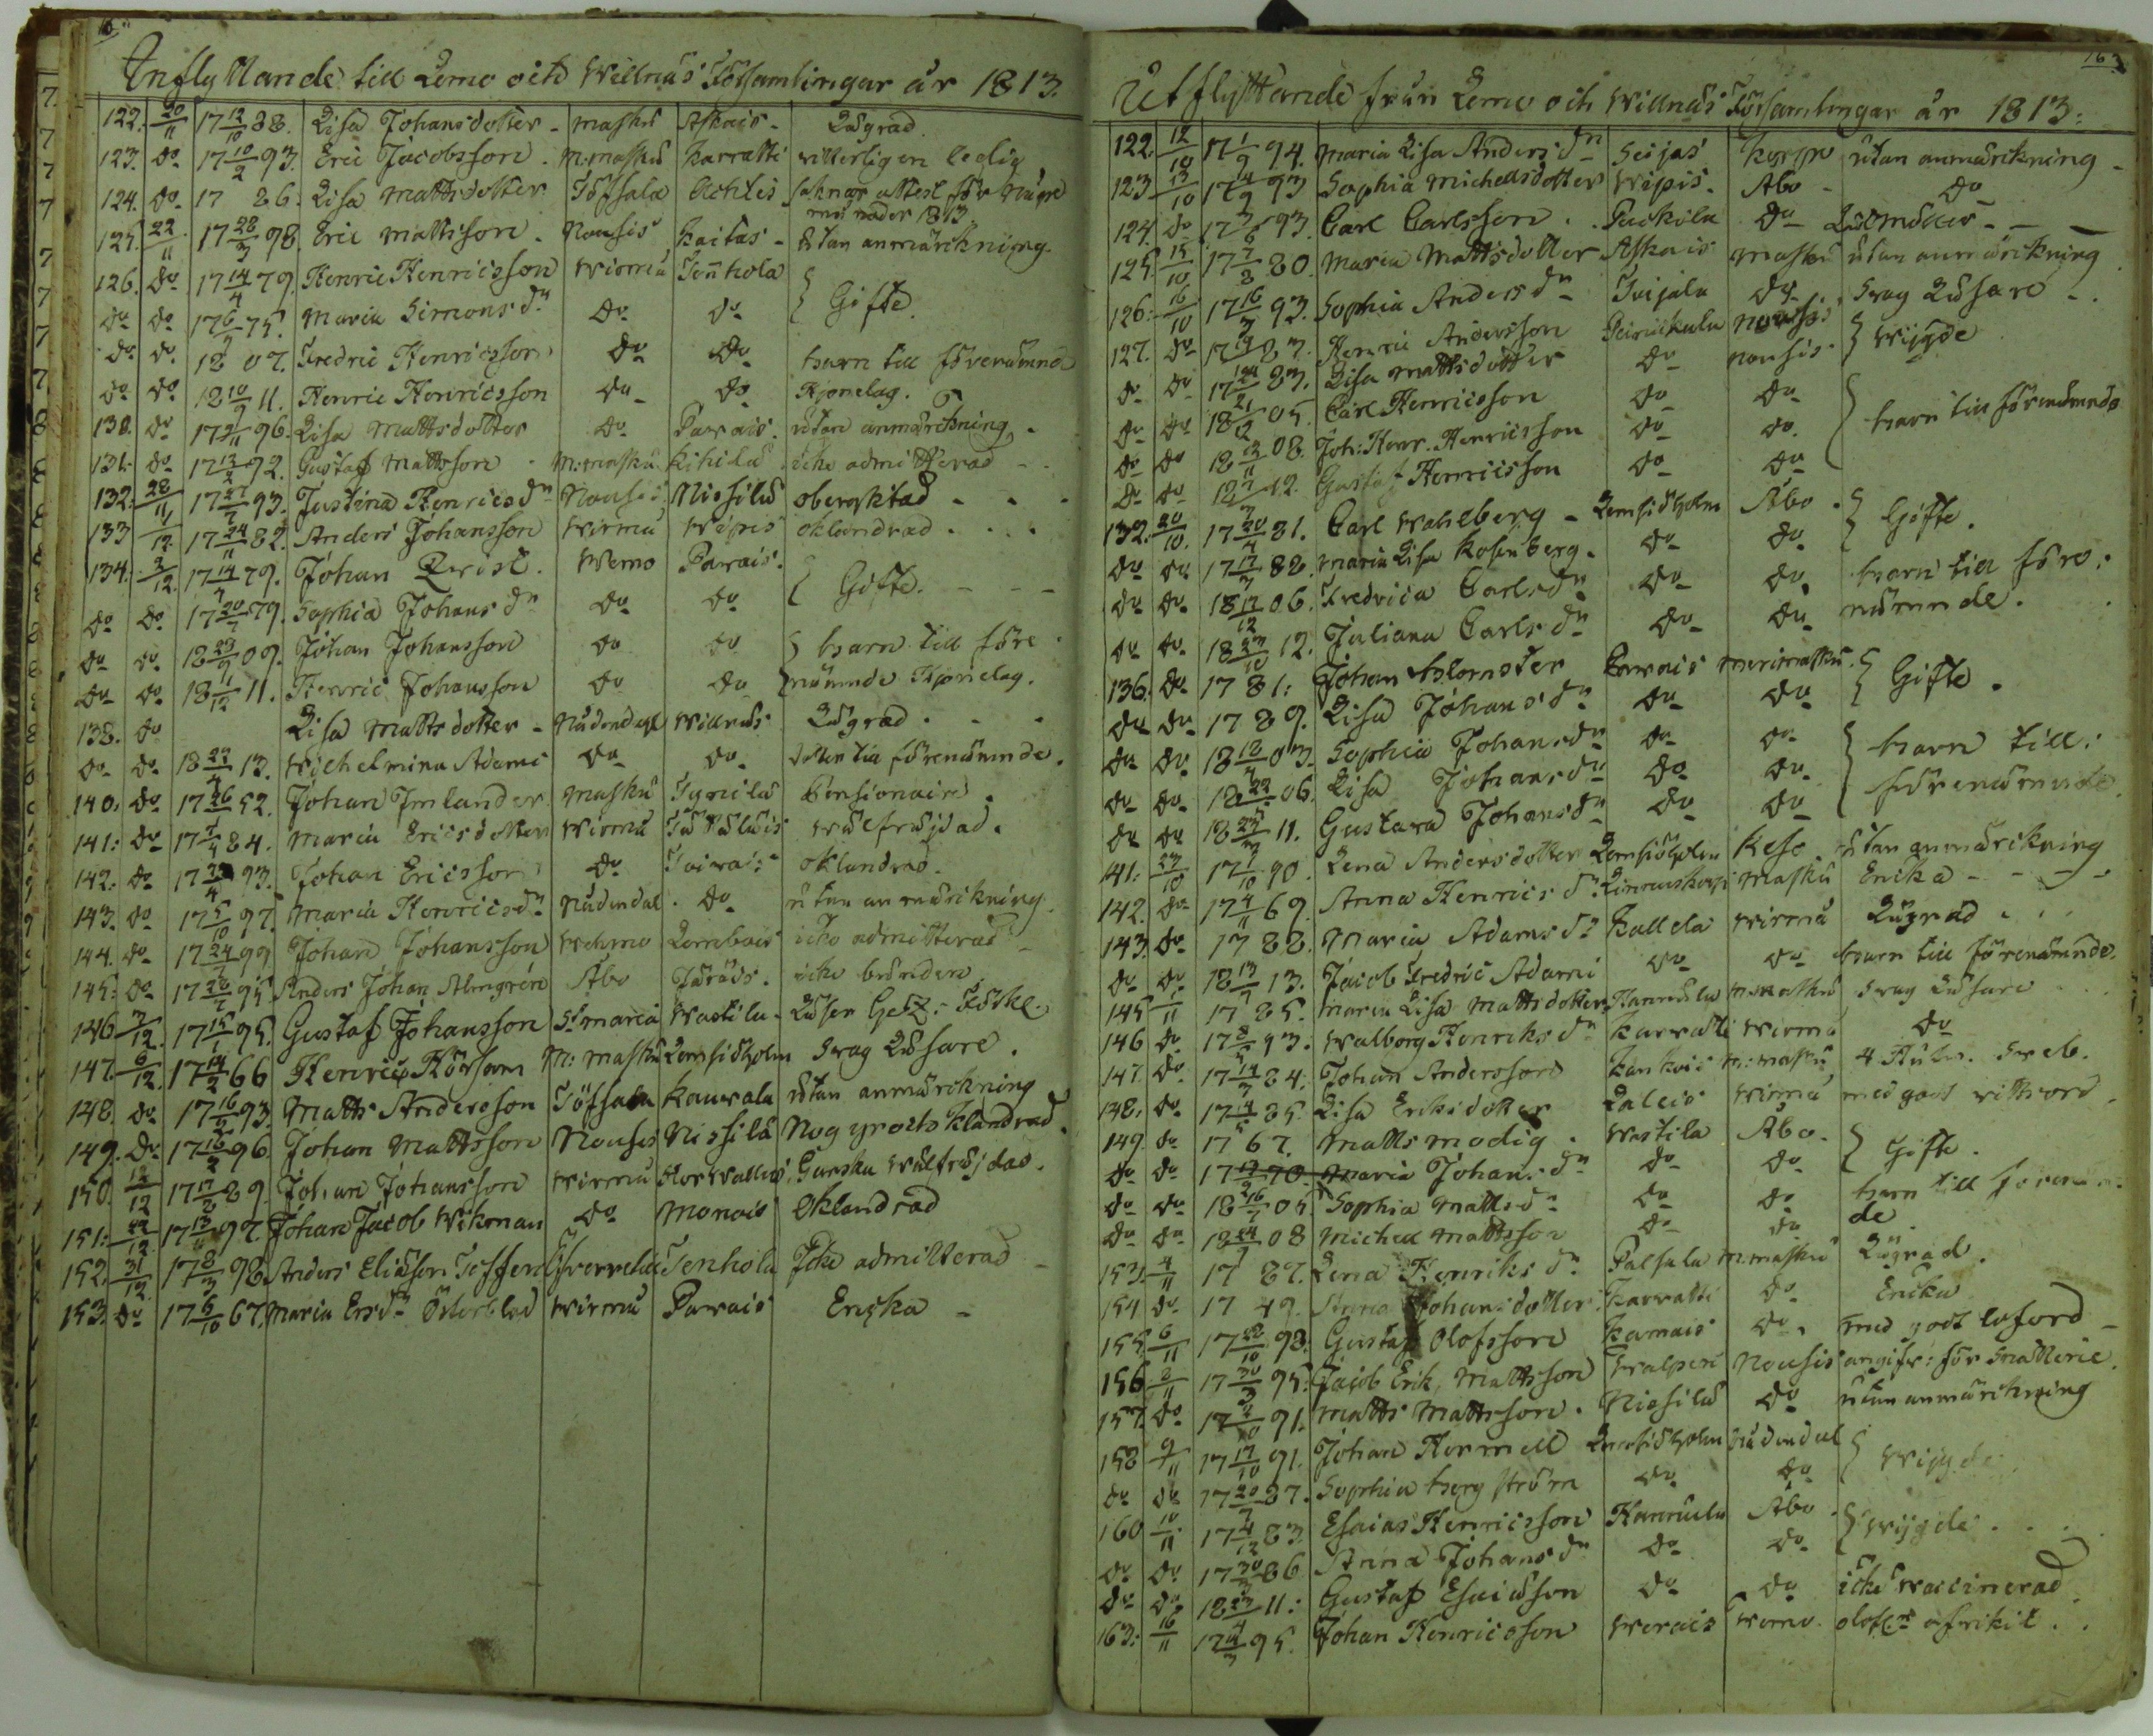 Inflyttande till Lemo och Willnäs Församlingar år 1813.
122. 20/11 17 12/10 88. Lisa Johansdotter - Masku Askais - Lägrad.
123. do 17 10/2 93. Eric Jacobsson. M:masku Karvatti witterligen ledig
124. do 17 86. Lisa Mattsdotter Töfsala Achtis saknar attest för någre
månader 1813.
125. 22/11 17 28/3 98. Eric Mattsson. Nousis Kaitas - utan anmärckning.
126. do 17 14/4 79. Henric Henricsson Wirmå Tenhola } Gifte.
do do 17 6/9 75. Maria Simons dr do do
do do 18 07. Fredric Henricsson do do barn till förenämnd
do do 18 10/9 11. Henric Henricsson do do Hjonelag.
130. do 17 9/11 96. Lisa Mattsdotter do Pavais. utan anmärckning.
131. do 17 12/2 92. Gustaf Mattsson - M:masku Kihilä icke admitterad -
132. 28/11 17 27/7 93. Justina Henricsdr Nousis Nissilä
133 1/12. 17 24/11 82. Anders Johansson Wirmå Wipis oklandrad - - -
134. 3/12. 17 14/4 79. Johan Qvist. Wemo Pavais. } Gifte. - - -
do do 17 20/7 79. Sophia Johans dr do do
do do 18 23/9 09. Johan Johansson do do } barn till före-
do do 18 11/12 11. Henric Johansson do do nämnde Hjonelag.
138. do Lisa Mattsdotter - Nådendahl Willnäs Lägrad. - -
do do 18 27/4 13. Wilhelmina Adami do do dotter till förenämnde.
140. do 17 26 52. Johan Imlander Masku Tynilä Pensionaire.
141: do 17 7/4 84. Maria Ericsdotter Wirmå wälfräjdad.
142. do 17 /4 93. Johan Ericsson do oklandrad.
143. do 17 5/10 97. Maria Henricsdr Nådendal do utan anmärckning.
144. do 17 24/7 99 Johan Johansson Wehmo Lembois icke admitterad -
145: do 17 28/7 95 Anders Johan Almgrén Åbo icke
146 3/12. 17 15/1 95. Gustaf Johansson St maria Wastila.
147. 6/12. 17 14/2 66 Henric M:masku Lemsidholm svag Läsare.
148. do 17 16/9 93. Matts Andersson Töfsala Kaurala utan anmärckning
149. do 17 16/2 96. Johan Mattsson Nousis Nissilä Nog yr och klandrad.
150. 12/12 17 17/8 89. Johan Johansson Wirmå Ganska wälfräjdad.
151: 22/12. 17 13/11 97. Johan Jacob Wikman do Monois Oklandrad
152. 31/12. 17 8/3 98. Anders Eliæson Tenhola Icke admitterad -
153: do 17 6/10 67. Maria Ersdr Österblad Wirmå Pavais Enka -
163.
Utflyttande från Lemo och Willnäs Församlingar år 1813:
122. 12/10 17 1/9 94. Maria Lisa Anders dr Seijas Korpo utan anmärckning -
123 13/10 17 14/9 93 Sophia Michelsdotter Wipis. Åbo - do
124. do 17 7/6 93. Carl Carlsson. Packila do - - -
125. 15/10 17 7/8 80. Maria Mattsdotter Askais Masku utan anmärckning.
126: 16/10 17 16/7 93. Sophia Anders dr Tuijala do Svag Läsare -
127. do 17 87. Henric Andersson Nousis } Wijgde
do do 17 24 83. Lisa Mattsdotter do Nousis
do do 18 21/12 05. Carl Henricsson do do } barn till förenämnde
do do 18 13/11 08. Joh: Henr. Henricsson do do
do do 18 7/7 12. Gustaf Henricsson do do
132. 20/10. 17 20/4 81. Carl Wahlberg - Lemsidholm Åbo. } Gifte.
do do 17 17/7 88. Maria Lisa Rosenberg. do do
do do 18 17/12 06. Fredrica Carlsdr do do barn till före-
do do 18 27/10 12. Juliana Carls dr do do nämnde.
136. do 17 81: Johan Blomster Pavais Merimasku } Gifte.
do do 17 89. Lisa Johans dr do do
do do 18 12/4 03. Sophia Johans dr do do } barn till
do do 18 22 06. Lisa Johans dr do do förenämnde.
do do 18 25/3 11. Gustava Johans dr do do
141: 23/10 17 1/10 90. Lena Andersdotter Lemsidholm Reso utan anmärckning
142. do 17 4/11 69. Anna Henrics dr Masku Enka - - -
143. do 17 88. Maria Adams dr Kallela Wirmå Lägrad . . .
do do 18 13/4 13. Jacob Fredric Adami do do barn till förenämnde.
145 1/11 17 85. Maria Lisa Mattsdotter Hannula M:masku svag Läsare . . .
146 do 17 8/7 93. Walborg Henriks dr Karvatti Wirmå do
147. do 17 14/7 84. Johan Andersson Kankois M:masku
148. do 17 4/5 85. Lisa Eriksdotter Laleis Wirmå med godt wittsord.
149. do 17 67. Matts Modig. Wastila Åbo. } Gifte.
do do 17 19/9 70. Maria Johans dr do do
do do 18 26/7 05. Sophia Matts dr do do barn till förenämn-
do do 18 24/9 08 Michel Mattsson do do de
153. 4/11 17 87. Lena Henriks dr Palsala M:masku Lägrad.
154 do 17 49. Anna Johansdotter Karvatti do Enka
155. 6/11 17 22/10 98. Gustaf Olofsson Kamois do. med godt loford -
156 8/11 17 30/3 95: Jacob Erik Mattsson Walpers Nousis angifv: för snatterie.
157. do 17 2/10 91. Matts Mattsson. Nissilä do utan anmärckning
158 9/11 17 17/10 91. Johan Hormell Lemsidholm Nådendal } Wijgde.
do do 17 20/7 87. Sophia Bergström do do
160 10/11 17 4/12 83. Esaias Henricsson Hannula Åbo. } Wijgde. . .
do do 17 30/7 86 Anna Johans dr do do
do do 18 23/9 11: Gustaf Esaiæson do do icke waccinerad.
163: 16/11 17 4/3 95. Johan Henricsson Werais Wemo.